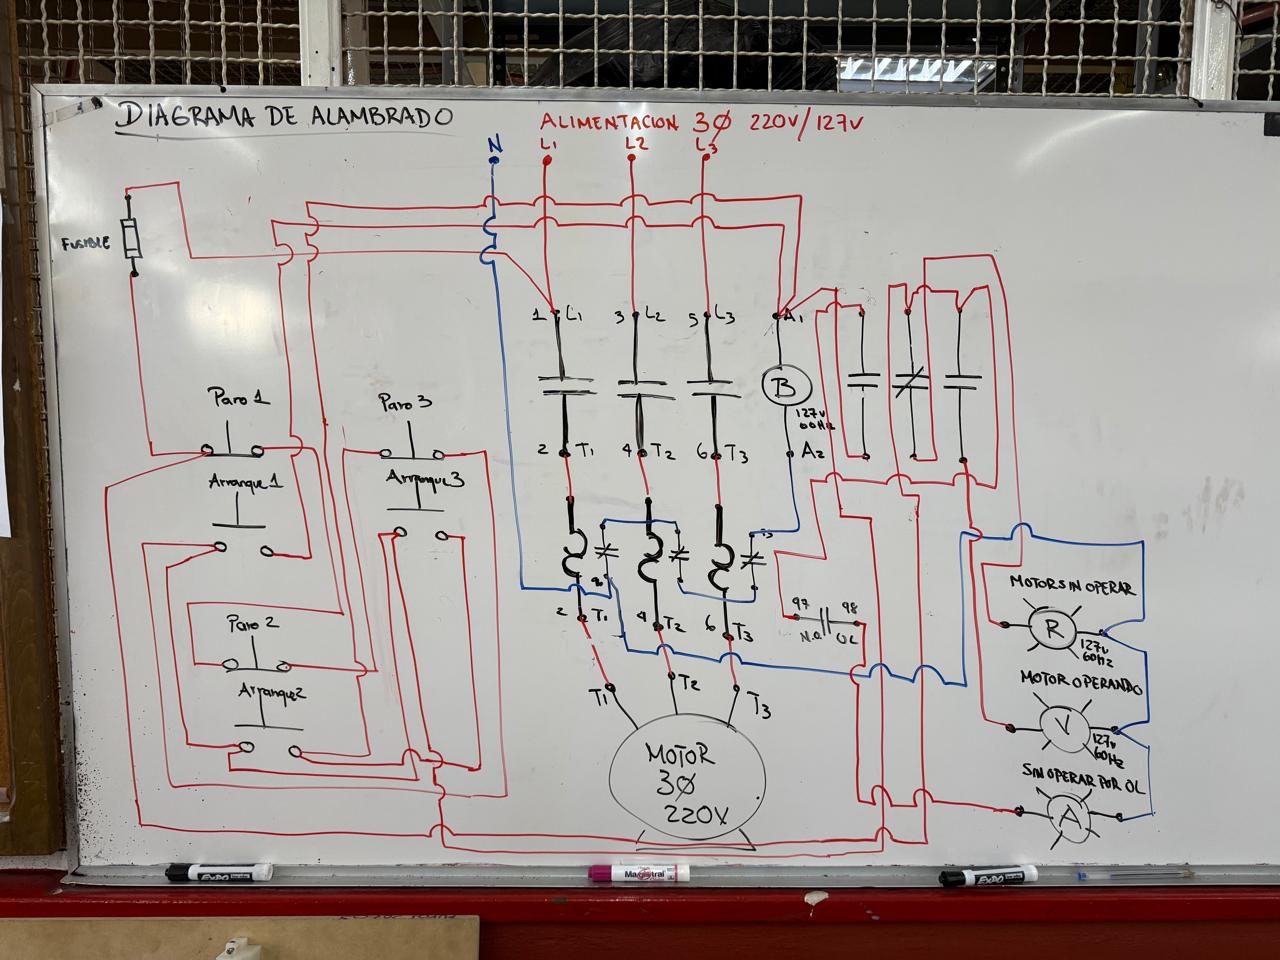 DIAGRAMA DE ALAMBRADO
ALIMENTACION 3Ø 220V/127V
N L1 L2 L3
FUSIBLE
1 L1 3 L2 5 L3 A1
B
127V
60Hz
Paro 1 Paro 3
2 T1 4 T2 6 T3 A2
Arranque 1 Arranque 3
MOTOR SIN OPERAR
97 98
2 T1 4 T2 6 T3 N.O. OL
R
127V
60Hz
Paro 2
Arranque 2
T1 T2 T3
MOTOR OPERANDO
V
127V
60Hz
MOTOR
3Ø
220V
SIN OPERAR POR OL
A
EXPO
Magistral
EXPO